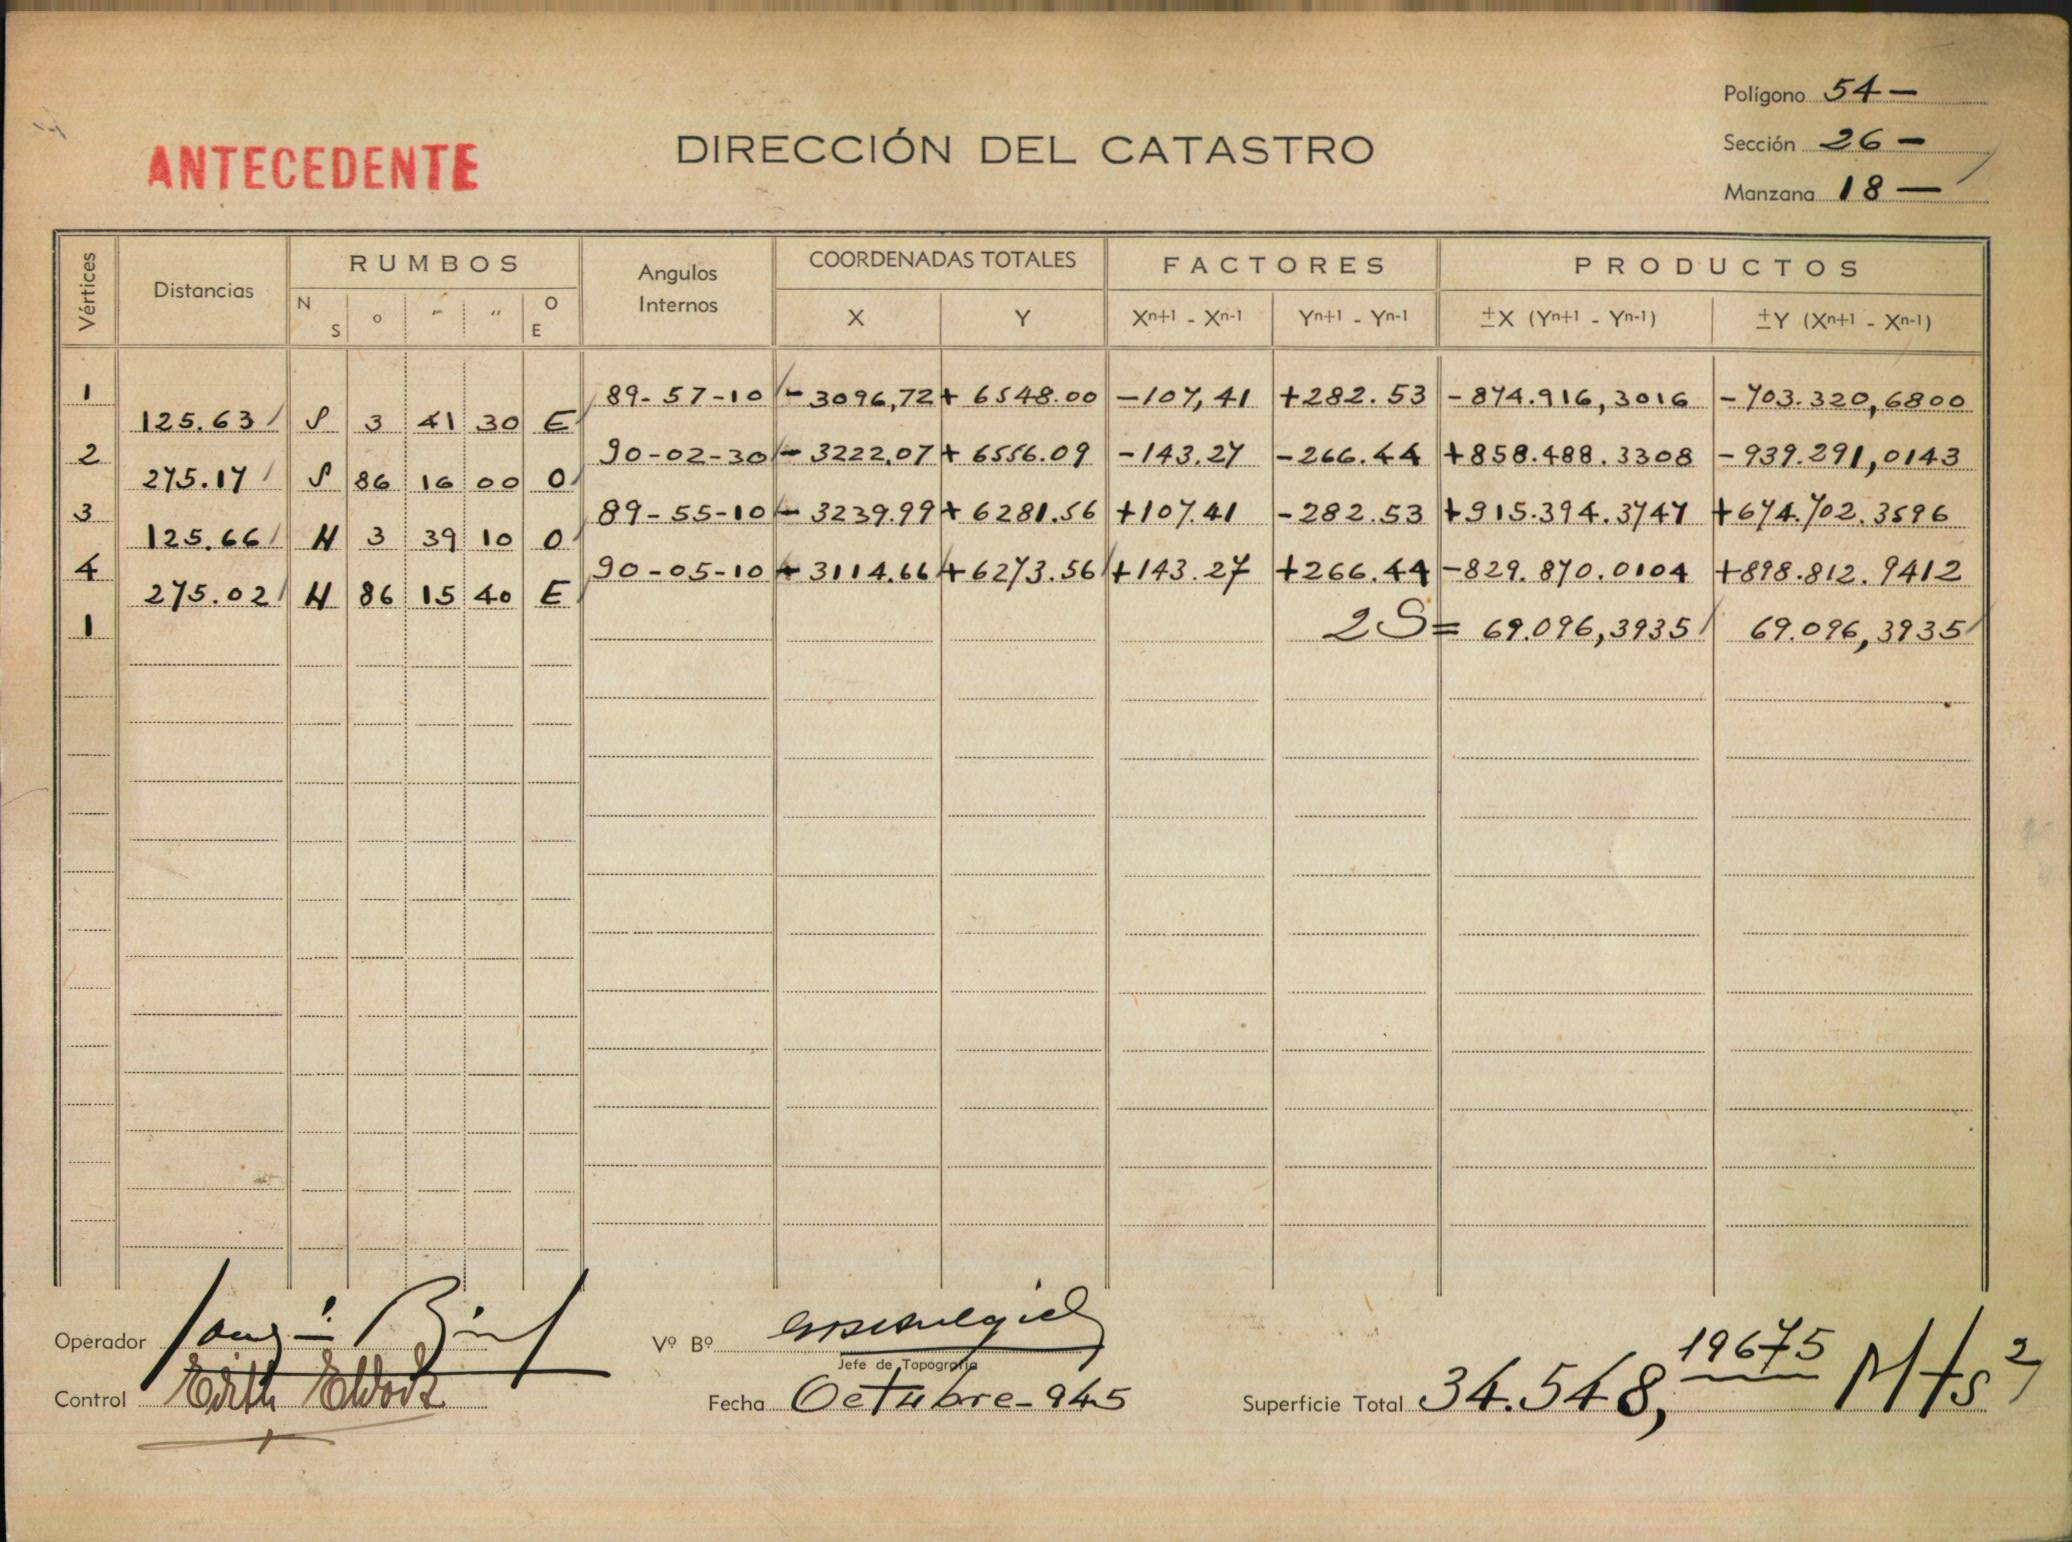 Polígono 54 —
Sección 26 —
Manzana 18 —
ANTECEDENTE
DIRECCIÓN DEL CATASTRO
Vértices Distancias RUMBOS Angulos Internos COORDENADAS TOTALES FACTORES PRODUCTOS
N S o ´ ´´ O E X Y Xn+1 - Xn-1 Yn+1 - Yn-1 ±X (Yn+1 - Yn-1) ±Y (Xn+1 - Xn-1)
1 89-57-10 - 3096,72 + 6548.00 -107,41 +282.53 -874.916,3016 -703.320,6800
125.63 S 3 41 30 E
2 90-02-30 - 3222,07 + 6556.09 -143.27 -266.44 +858.488.3308 -939.291,0143
275.17 S 86 16 00 O
3 89-55-10 - 3239.99 + 6281.56 +107.41 -282.53 +915.394.3747 +674.702.3596
125.66 N 3 39 10 O
4 90-05-10 - 3114.66 + 6273.56 +143.27 +266.44 -829.870.0104 +898.812.9412
275.02 N 86 15 40 E
1 2S = 69.096,3935 69.096,3935
Operador
Vº Bº
Jefe de Topografía
Control Edith
Fecha Octubre-945
Superficie Total 34.548,19675 Mts2